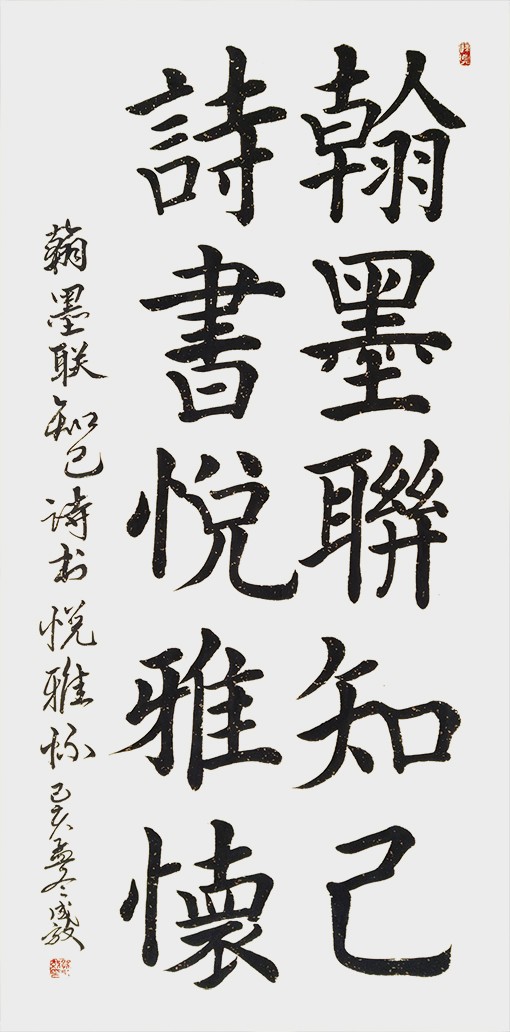 翰墨聯知己
詩書悅雅懷
翰墨联知己诗书悦雅怀己亥孟冬成毅